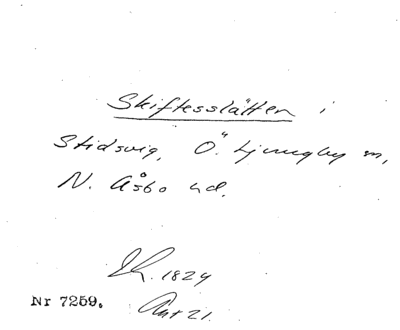 Skiftesslätten i
Stidsvig, Ö. Ljungby sn,
N. Åsbo hd.
1824
Nr 7259. Akt 21.